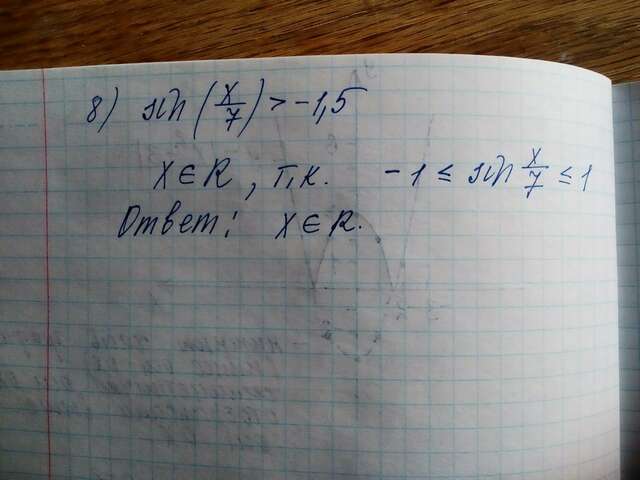 8) sin(x/7) > -1,5
x ∈ R, т.к. -1 ≤ sin x/7 ≤ 1
Ответ: x ∈ R.